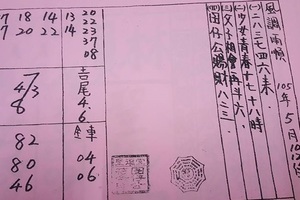 風調雨順
105年5月
(一)二八三七四六來.
(二)少女青春十七十八時
(三)父子相會再斗六.
(四)田仔公賜財八三.
20
13 22
14 23
37
08
吉尾
4.
6
7 18 14
7 20 22
4/3
6
82
80
46
車
04
06